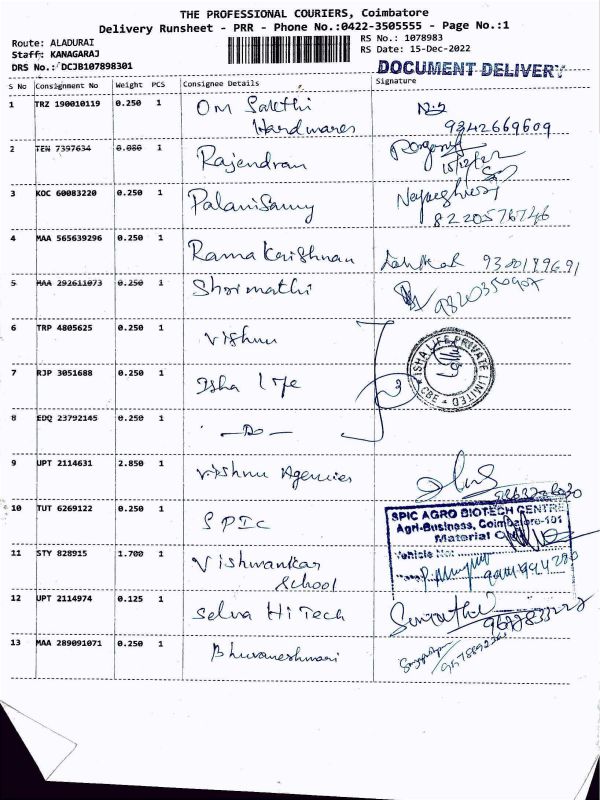 THE PROFESSIONAL COURIERS, Coimbatore
Delivery Runsheet - PRR - Phone No.:0422-3505555 - Page No.:1
Route: ALADURAI
RS No.: 1078983
Staff: KANAGARAJ
RS Date: 15-Dec-2022
DRS No.: DCJB107898301
DOCUMENT DELIVERY
S No Consignment No Weight PCS Consignee Details Signature
1 TRZ 190010119 0.250 1 Om Sakthi
Hardwares 9342669609
2 TEN 7397634 0.080 1 Rajendran
3 KOC 60083220 0.250 1 PalaniSamy
8220576746
4 MAA 565639296 0.250 1 Rama Krishnan
5 MAA 292611073 0.250 1 Shrimathi
6 TRP 4805625 0.250 1 Vishnu
7 RJP 3051688 0.250 1 Isha Life 3
ISHA LIFE PRIVATE LIMITED
CBE
8 EDQ 23792145 0.250 1 -Do-
9 UPT 2114631 2.850 1 Vishnu Agencies
10 TUT 6269122 0.250 1 SPIC
SPIC AGRO BIOTECH CENTRE
Agri-Business, Coimbatore-101
Material
Vehicle No:
11 STY 828915 1.700 1 Vishwankar
School
12 UPT 2114974 0.125 1 Selva Hi Tech
13 MAA 289091071 0.250 1 Bhuvaneshwari